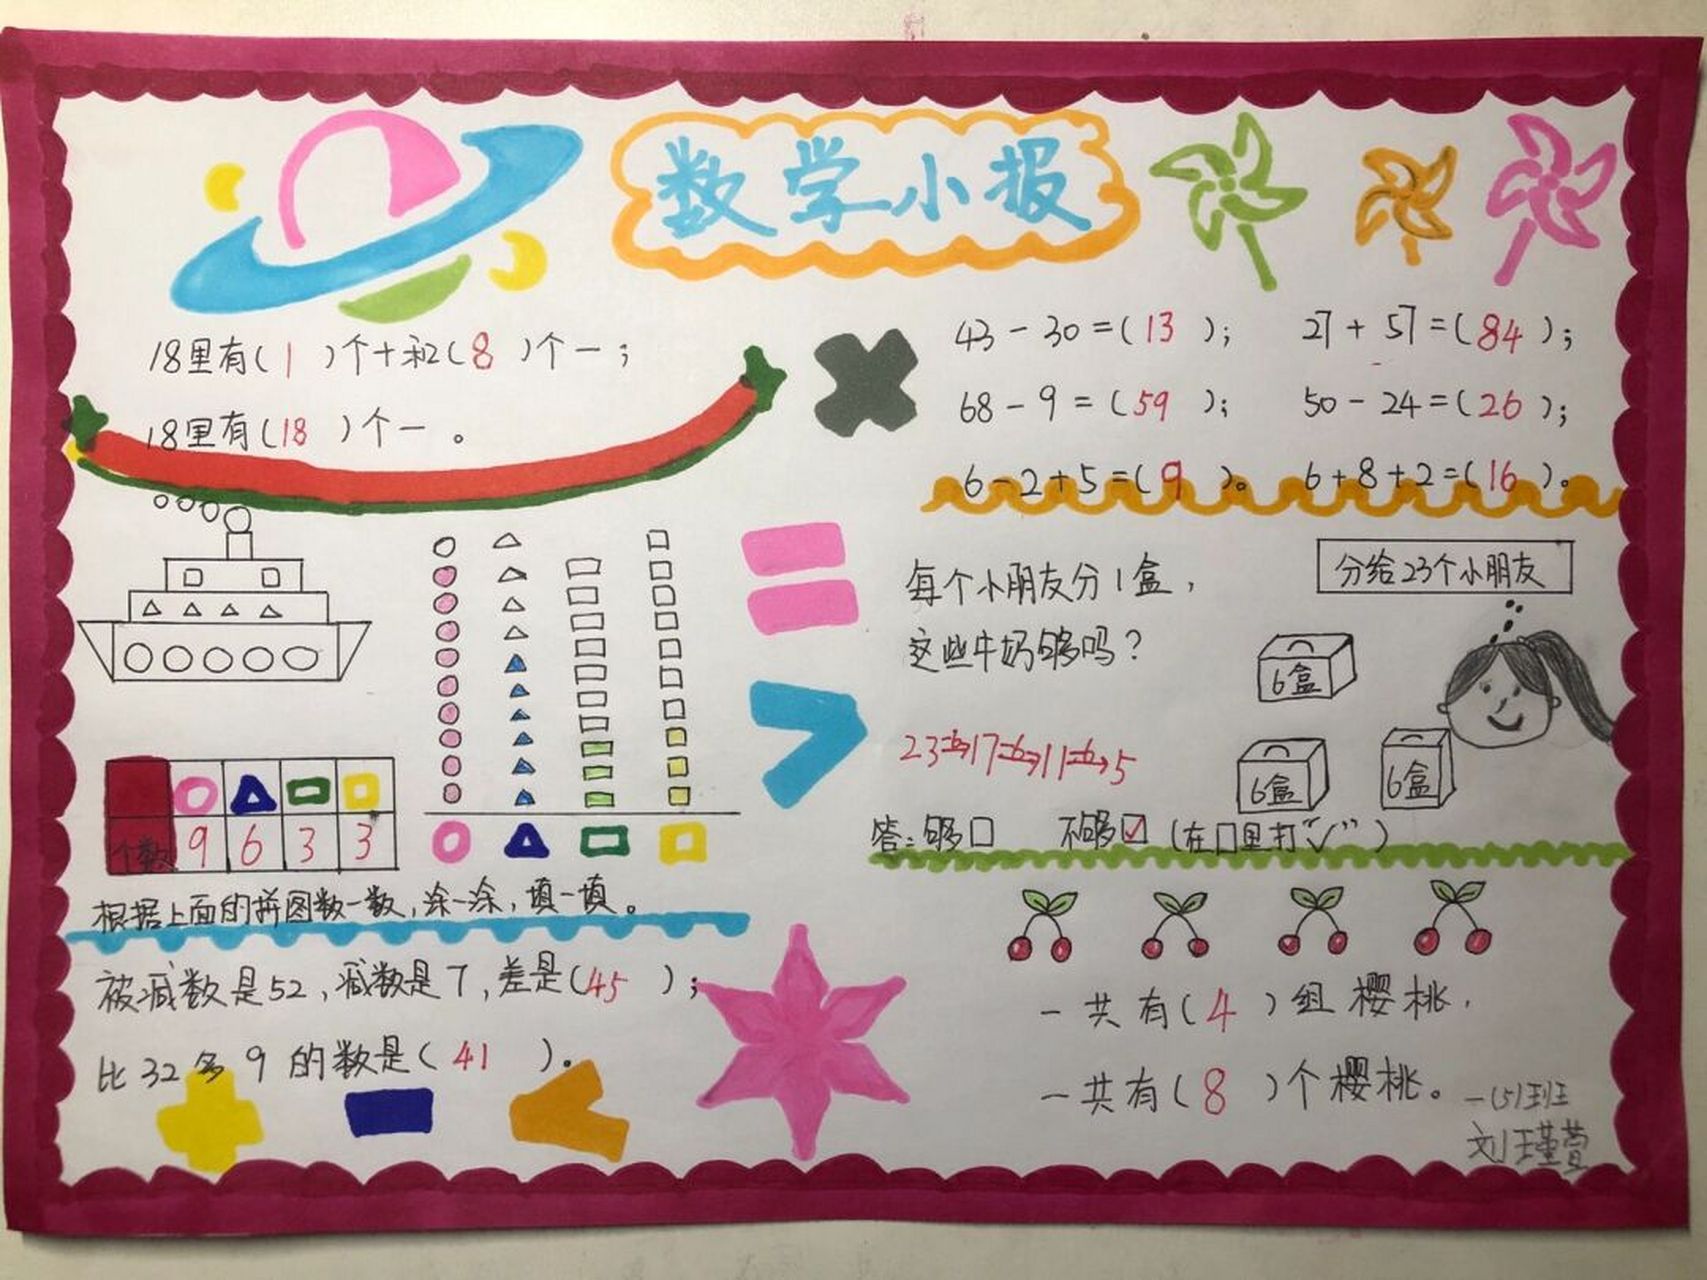 数学小报
18里有(1)个十和(8)个一;
18里有(18)个一。
43-30=(13); 27+57=(84);
68-9=(59); 50-24=(26);
6-2+5=(9)。 6+8+2=(16)。
个数 9 6 3 3
根据上面的拼图数一数,涂一涂,填一填。
被减数是52,减数是7,差是(45);
比32多9的数是(41)。
每个小朋友分1盒,
这些牛奶够吗?
分给23个小朋友
6盒
6盒
6盒
23-6→17-6→11-6→5
答:够□ 不够☑(在□里打“√”)
一共有(4)组樱桃,
一共有(8)个樱桃。
一(5)班
刘瑾萱